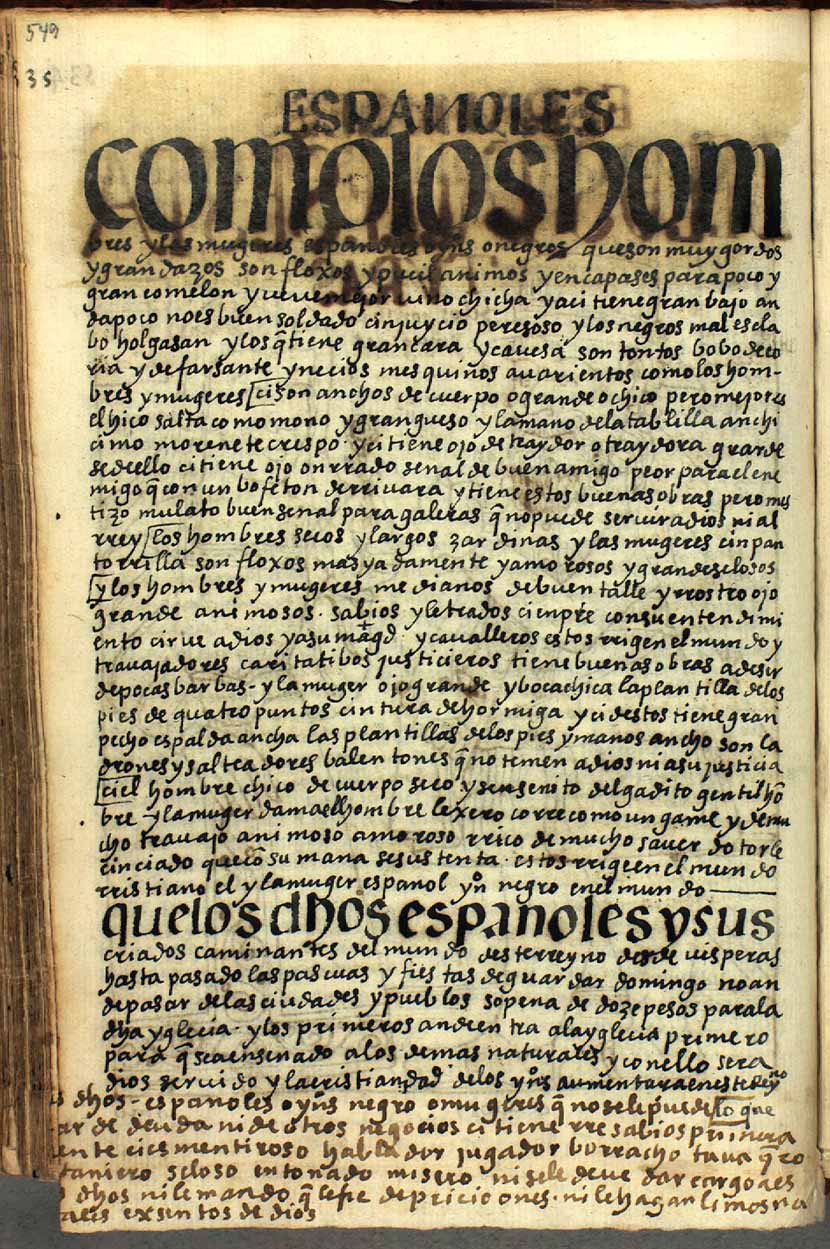 549
35
ESPAÑOLES
comoloshom
bres y las mugeres españoles oyns onegros que son muy gordos
y grandazos son floxos y pucilanimos y encapases para poco y
gran comelon y veve mejor vino chicha y aci tiene gran bajo an
da poco no es buen soldado cin juycio peresoso y los negros mal escla
bo holgasan y los q̃ tiene gran cara y cavesa son tontos bobo de
ria y de farsante y necios mesquinos avarientos como los hom-
bres y mugeres [ci son anchos de cuerpo o grande o chico pero mejores
el hico salta como mono y gran queso y la mano de la tablilla anchi
cimo morenete crespo. y ci tiene ojo de traydor o traydora grarde
se de ello ci tiene ojo onrrado señal de buen amigo peor para el ene
migo q̃ con un bofeton derrivara y tiene estos buenas obras pero mes
tizo mulato buen señal para galeras q̃ no puede servir a dios ni al
rrey [los hombres secos y largos zardinas y las mugeres cin pan
torrilla son floxos mas yadamente y amorosos y grandes selosos
[y los hombres y mugeres medianos de buen talle y rrostro ojo
grande animosos. sabios y letrados cienpre con su entendimi
ento cirve a dios y a su magd. y cavalleros estos rrigen el mundo y
travajadores caritatibos justicieros tiene buenas obras a desir
de pocas barbas. y la muger ojo grande y boca chica la plantilla de los
pies de quatro puntos cintura de hormiga y ci destos tiene gran
pecho espalda ancha las plantillas de los pies y manos ancho son la
drones y salteadores balentones q̃ no temen a dios ni a su justicia
[ci el hombre chico de cuerpo seco y senseñito delgadito gentilhõ
bre y la muger dama el hombre lexero corre como un game y de mu
cho travajo animoso amoroso rrico de mucho saver dotor le
cinciado que cõ su mana se sustenta. estos rrigeen el mundo
rristiano el y la muger español yn negro en el mundo
que los dhos españoles y sus
criados caminantes del mundo deste rreyno desde visperas
hasta pasado las pascuas y fiestas de guardar domingo no an
de pasar de las ciudades y pueblos so pena de doze pesos para la
dha yglecia. y los primeros an de entra a la yglecia primero
para q̃ sea ensenado a los demas naturales y con ello sera
dios servido y la cristiandad de los yns aumentara en este rreyno
dhos - españoles o yns negro o mugeres q̃ no se le puede [lo que
ar de deuda ni de otros negocios ci tiene rresabios primera
ente ci es mentiroso hablador jugador borracho
taniero seloso entonado misero ni se le deve dar cargo a es
dhos ni le mando q̃ le fie de pricicones. ni le hagan limosna
exsentos de dios